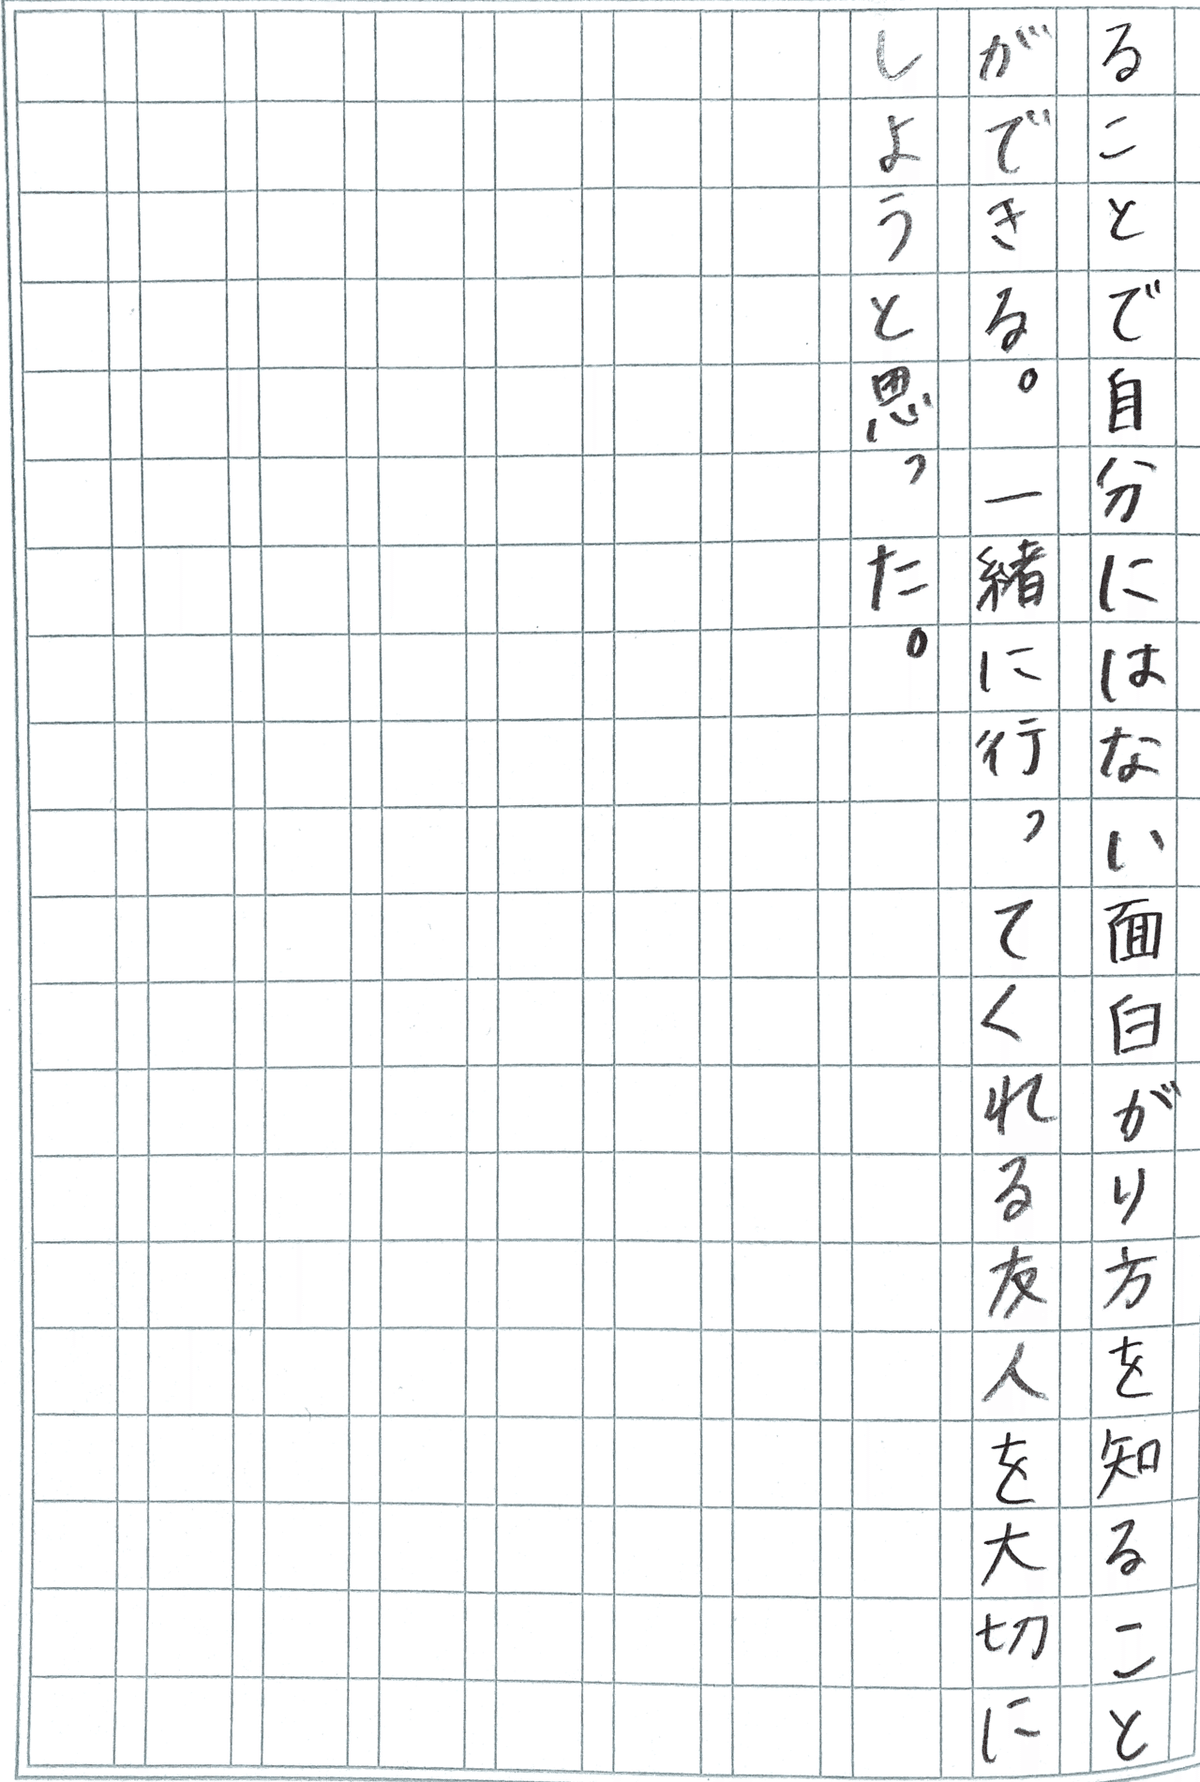 ることで自分にはない面白がり方を知ること
ができる。一緒に行ってくれる友人を大切に
しようと思った。